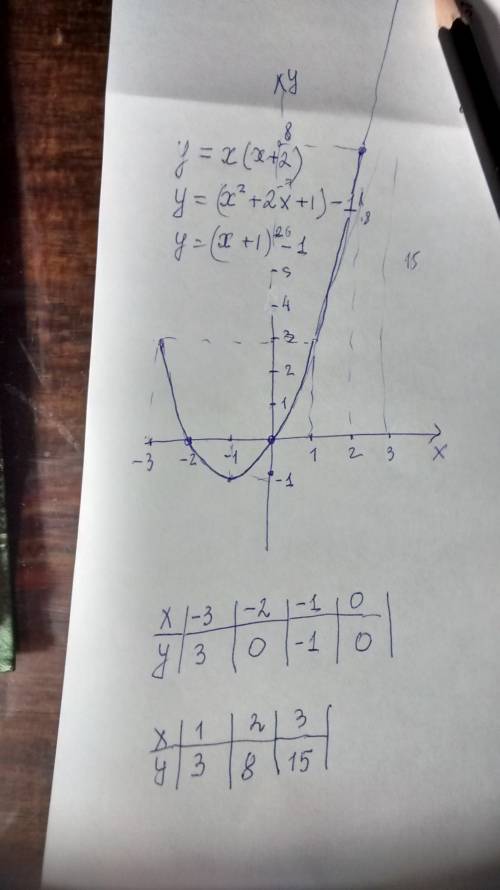 y
8
y = x(x+2)
7
y = (x² + 2x + 1) - 1
8
6
y = (x + 1)² - 1
15
5
4
3
2
1
-3 -2 -1 1 2 3 x
-1
x | -3 | -2 | -1 | 0
y | 3 | 0 | -1 | 0
x | 1 | 2 | 3
y | 3 | 8 | 15